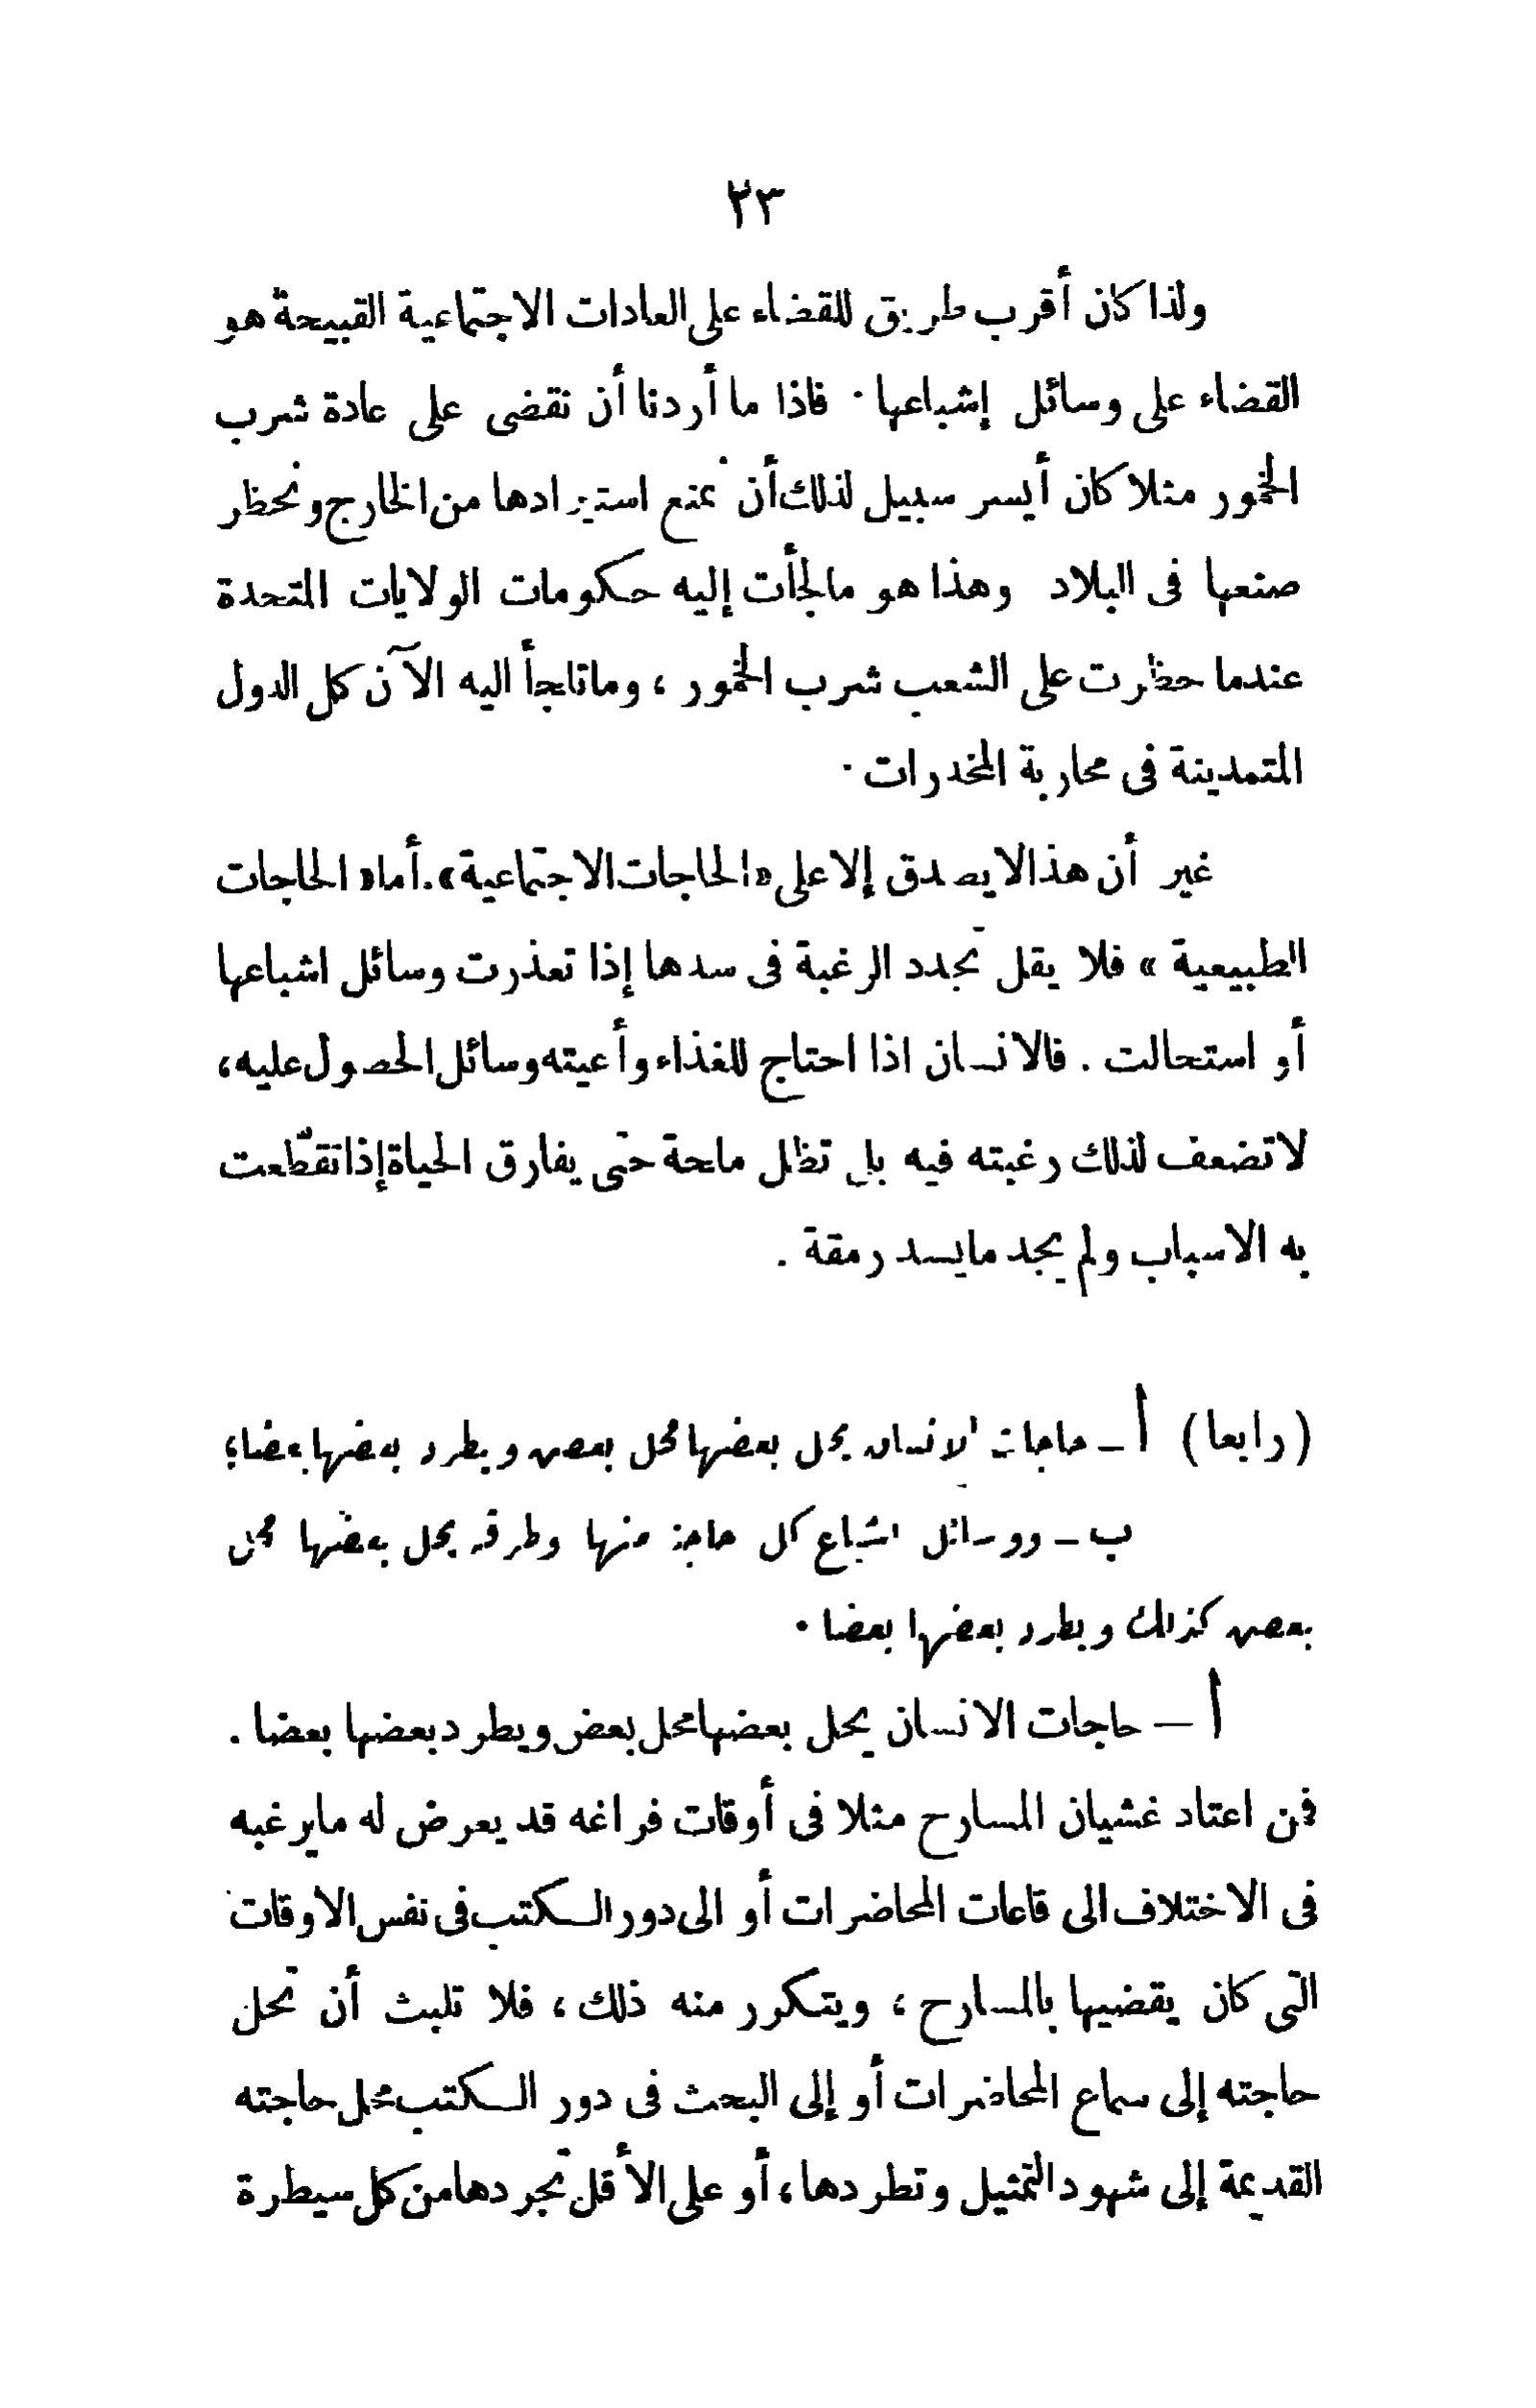 ٢٣
ولذا كان أقرب طريق للقضاء على العادات الاجتماعية القبيحة هو
القضاء على وسائل إشباعها . فاذا ما أردنا أن نقضى على عادة شرب
الخمور مثلا كان أيسر سبيل لذلك أن نمنع استيرادها من الخارج ونحظر
صنعها فى البلاد وهذا هو مالجأت إليه حكومات الولايات المتحدة
عندما حظرت على الشعب شرب الخمور ، وماتلجأ اليه الآن كل الدول
المتمدينة فى محاربة المخدرات .
غير أن هذا لا يصدق إلا على «الحاجات الاجتماعية». أما «الحاجات
الطبيعية » فلا يقل تجدد الرغبة فى سدها إذا تعذرت وسائل اشباعها
أو استحالت . فالانسان اذا احتاج للغذاء وأعيته وسائل الحصول عليه ،
لا تضعف لذلك رغبته فيه بل تظل ملحة حتى يفارق الحياة إذا تقطّعت
به الاسباب ولم يجد مايسد رمقة .
(رابعا) أ ـ حاجات الانسان يحل بعضها محل بعض ويطرد بعضها بعضا ؛
ب ـ ووسائل اشباع كل حاجة منها وطرقه يحل بعضها محل
بعض كذلك ويطرد بعضها بعضا .
أ — حاجات الانسان يحل بعضها محل بعض ويطرد بعضها بعضا .
فمن اعتاد غشيان المسارح مثلا فى أوقات فراغه قد يعرض له مايرغبه
فى الاختلاف الى قاعات المحاضرات أو الى دور الكتب فى نفس الأوقات
التى كان يقضيها بالمسارح ، ويتكرر منه ذلك ، فلا تلبث أن تحل
حاجته إلى سماع المحاضرات أو إلى البحث فى دور الكتب محل حاجته
القديمة إلى شهود التمثيل وتطردها ، أو على الأقل تجردها من كل سيطرة